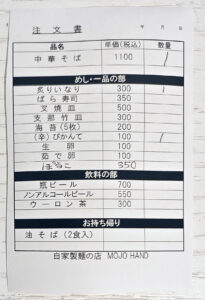 注文書
年 月 日
品名 単価(税込) 数量
中華そば 1100 /
めし・一品の部
炙りいなり 300 /
ばら寿司 350
叉焼皿 500
支那竹皿 300
海苔(5枚) 200
(辛)びかんて 100 /
生卵 100
茹で卵 100
350
飲料の部
瓶ビール 700
ノンアルコールビール 550
ウーロン茶 300
お持ち帰り
油そば(2食入)
自家製麺の店 MOJO HAND